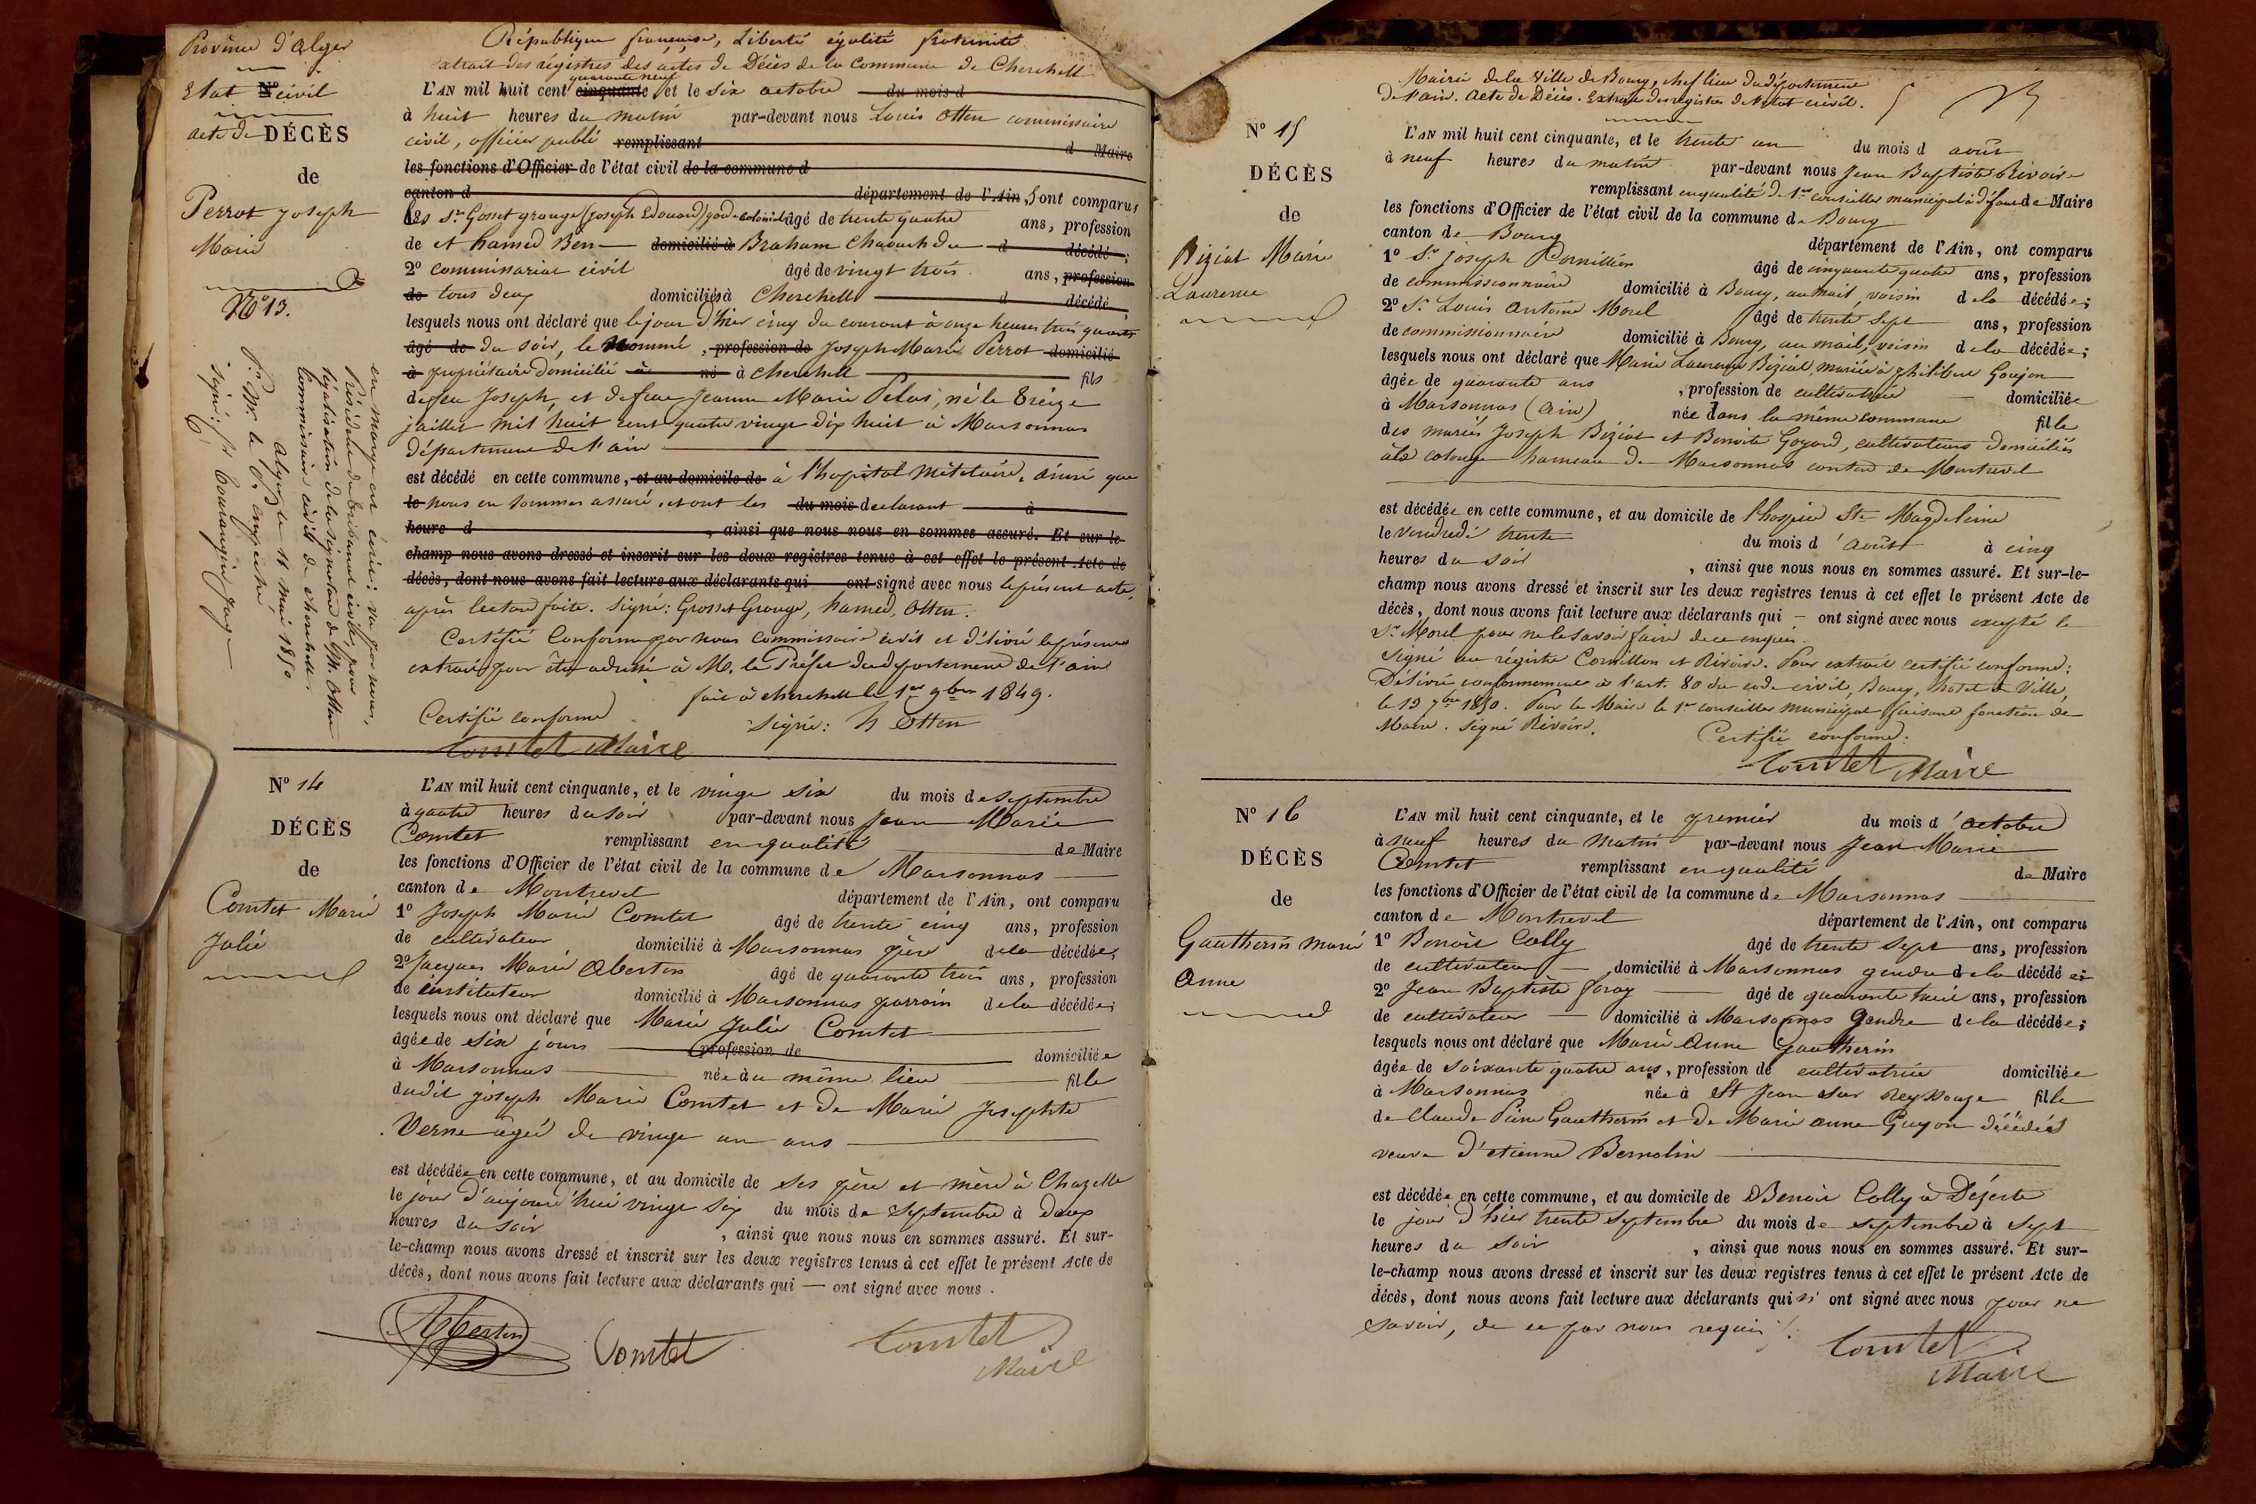 Province d'Alger
Etat N° civil
acte de DÉCÈS
de
Perrot joseph
Marie
N° 13.
en marge est écrit : vu par nous,
Président du tribunal civil, pour
légalisation de la signature de Mr. Otten
Commissaire civil de cherchell.
Alger le 11 mai 1850
Pr. Mr. le Pt. empêché
signé :
République française, Liberté égalité fraternité
extrait des registres des actes de Décès de la Commune de Cherchell
quarante neuf
L'AN mil huit cent cinquante, et le six octobre du mois d
à huit heures du matin par-devant nous Louis Otten commissaire
civil, officier publi remplissant d Maire
les fonctions d'Officier de l'état civil de la commune d
canton d département de l'Ain, sont comparus
les Sr. Gosset grange (joseph Edouard) âgé de trente quatre ans, profession
de et hamed Ben domicilié à Braham Chaouch du d décédé ;
2° commissariat civil âgé de vingt trois ans, profession
de tous deux domiciliés à Cherchell d décédé
lesquels nous ont déclaré que le jour d'hier cinq du courant à onze heures trois quarts
âgé de du soir, le nommé , profession de joseph Marie Perrot domicilié
à propriétaire domicilié à né à cherchell fils
de feu joseph, et de feue jeanne Marie Pelus, né le treize
juillet mil huit cent quatre vingt dix huit à Marsonnas
département de l'ain
est décédé en cette commune, et au domicile de à l'hopital militaire, ainsi que
le nous en sommes assuré, et ont les du mois declarant à
heure d , ainsi que nous nous en sommes assuré. Et sur-le-
champ nous avons dressé et inscrit sur les deux registres tenus à cet effet le présent Acte de
décès, dont nous avons fait lecture aux déclarants qui ont signé avec nous le présent acte,
après lecture faite. Signé : Grosset Grange, hamed, Otten.
Certifié Conforme par nous Commissaire civil et délivré le présent
extrait pour être adressé à M. le Préfet du département de l'ain
fait à cherchell le 1er 9bre 1849.
Certifié conforme Signé : h Otten
Comtet Maire
N° 14
DÉCÈS
de
Comtet Marie
Julie
L'AN mil huit cent cinquante, et le vingt six du mois de septembre
à quatre heures du soir par-devant nous Jean Marie
Comtet remplissant en qualité de Maire
les fonctions d'Officier de l'état civil de la commune de Marsonnas
canton de Montrevel département de l'Ain, ont comparu
1° Joseph Marie Comtet âgé de trente cinq ans, profession
de cultivateur domicilié à Marsonnas père de la décédée ;
2° Jacques Marie Aberton âgé de quarante trois ans, profession
de instituteur domicilié à Marsonnas parrain de la décédée ;
lesquels nous ont déclaré que Marie Julie Comtet
âgée de six jours profession de domiciliée
à Marsonnas née au même lieu fille
dudit joseph Marie Comtet et de Marie Josephte
Verne âgée de vingt un ans
est décédée en cette commune, et au domicile de ses père et mère à Chazelle
le jour d'aujourd'hui vingt six du mois de septembre à deux
heures du soir , ainsi que nous nous en sommes assuré. Et sur-
le-champ nous avons dressé et inscrit sur les deux registres tenus à cet effet le présent Acte de
décès, dont nous avons fait lecture aux déclarants qui — ont signé avec nous .
Aberton Comtet Comtet
Maire
Mairie de la Ville de Bourg, chef lieu du département
de l'ain. Acte de Décès. Extrait des registres de l'état civil.
N° 15
DÉCÈS
de
Biziat Marie
Laurence
L'AN mil huit cent cinquante, et le trente un du mois d août
à neuf heures du matin par-devant nous Jean Baptiste Rivoire
remplissant en qualité de 1er conseiller municipal à défaut de Maire
les fonctions d'Officier de l'état civil de la commune de Bourg
canton de Bourg département de l'Ain, ont comparu
1° Sr. joseph Cornillon âgé de cinquante quatre ans, profession
de commissionnaire domicilié à Bourg, au mail, voisin de la décédée ;
2° Sr. Louis Antoine Morel âgé de trente sept ans, profession
de commissionnaire domicilié à Bourg, au mail, voisin de la décédée ;
lesquels nous ont déclaré que Marie Laurence Biziat, mariée à philibert Goujon
âgée de quarante ans , profession de cultivatrice domiciliée
à Marsonnas (ain) née dans la même commune fille
des mariés Joseph Biziat et Benoite Goyard, cultivateurs domiciliés
à la colonge hameau de Marsonnas canton de Montrevel
est décédée en cette commune, et au domicile de l'hospice Ste Magdeleine
le vendredi trente du mois d'août à cinq
heures du soir , ainsi que nous nous en sommes assuré. Et sur-le-
champ nous avons dressé et inscrit sur les deux registres tenus à cet effet le présent Acte de
décès, dont nous avons fait lecture aux déclarants qui — ont signé avec nous excepté le
Sr. Morel pour ne le savoir faire de ce enquis.
Signé au registre Cornillon et Rivoire. Pour extrait certifié conforme :
Délivré conformement à l'art. 80 du code civil, Bourg, hotel de Ville,
le 19 7bre 1850. Pour le Maire le 1er conseiller municipal faisant fonction de
Maire. Signé Rivoire. Certifié conforme :
Comtet Maire
N° 16
DÉCÈS
de
Gautherin marie
Anne
L'AN mil huit cent cinquante, et le premier du mois d'octobre
à neuf heures du matin par-devant nous Jean Marie
Comtet remplissant en qualité de Maire
les fonctions d'Officier de l'état civil de la commune de Marsonnas
canton de Montrevel département de l'Ain, ont comparu
1° Benoit Colly âgé de trente sept ans, profession
de cultivateur — domicilié à Marsonnas gendre de la décédée
2° Jean Baptiste foray âgé de quarante huit ans, profession
de cultivateur — domicilié à Marsonnas gendre de la décédée ;
lesquels nous ont déclaré que Marie Anne Gautherin
âgée de soixante quatre ans, profession de cultivatrice domiciliée
à Marsonnas née à St Jean sur Reyssouze fille
de Claude Pierre Gautherin et de Marie anne Guyon décédés
veuve d'etienne Bernolin
est décédée en cette commune, et au domicile de Benoit Colly à Déserte
le jour d'hier trente septembre du mois de septembre à sept
heures du soir , ainsi que nous nous en sommes assuré. Et sur-
le-champ nous avons dressé et inscrit sur les deux registres tenus à cet effet le présent Acte de
décès, dont nous avons fait lecture aux déclarants qui n' ont signé avec nous pour ne
savoir, de ce par nous requis.
Comtet
Maire